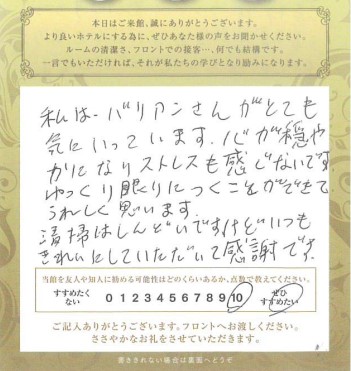 本日はご来館、誠にありがとうございます。
より良いホテルにする為に、ぜひあなた様の声をお聞かせください。
ルームの清潔さ、フロントでの接客…、何でも結構です。
一言でもいただければ、それが私たちの学びとなり励みになります。
私は、バリアンさんがとても
気にいっています。心が穏や
かになりストレスも感じないです。
ゆっくり眠りにつくことができて
うれしく思います。
清掃はしんどいですけどいつも
きれいにしていただいて感謝です。
当館を友人や知人に勧める可能性はどのくらいあるか、点数で教えてください。
すすめたく
ない
0 1 2 3 4 5 6 7 8 9 10
ぜひ
すすめたい
ご記入ありがとうございます。フロントへお渡しください。
ささやかなお礼をさせていただきます。
書ききれない場合は裏面へどうぞ